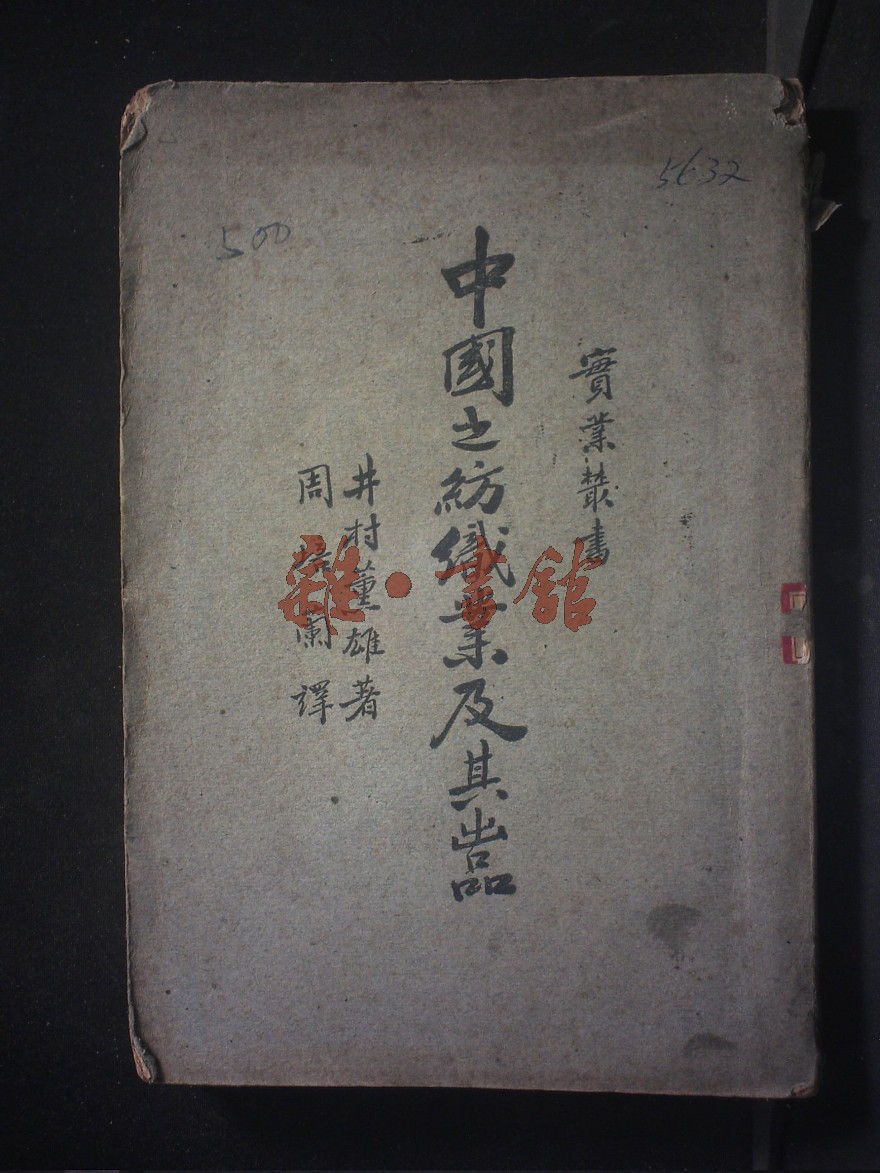 5632
500
實業叢書
中國之紡織業及其出品
井村薰雄著
周培蘭譯
雜·書館